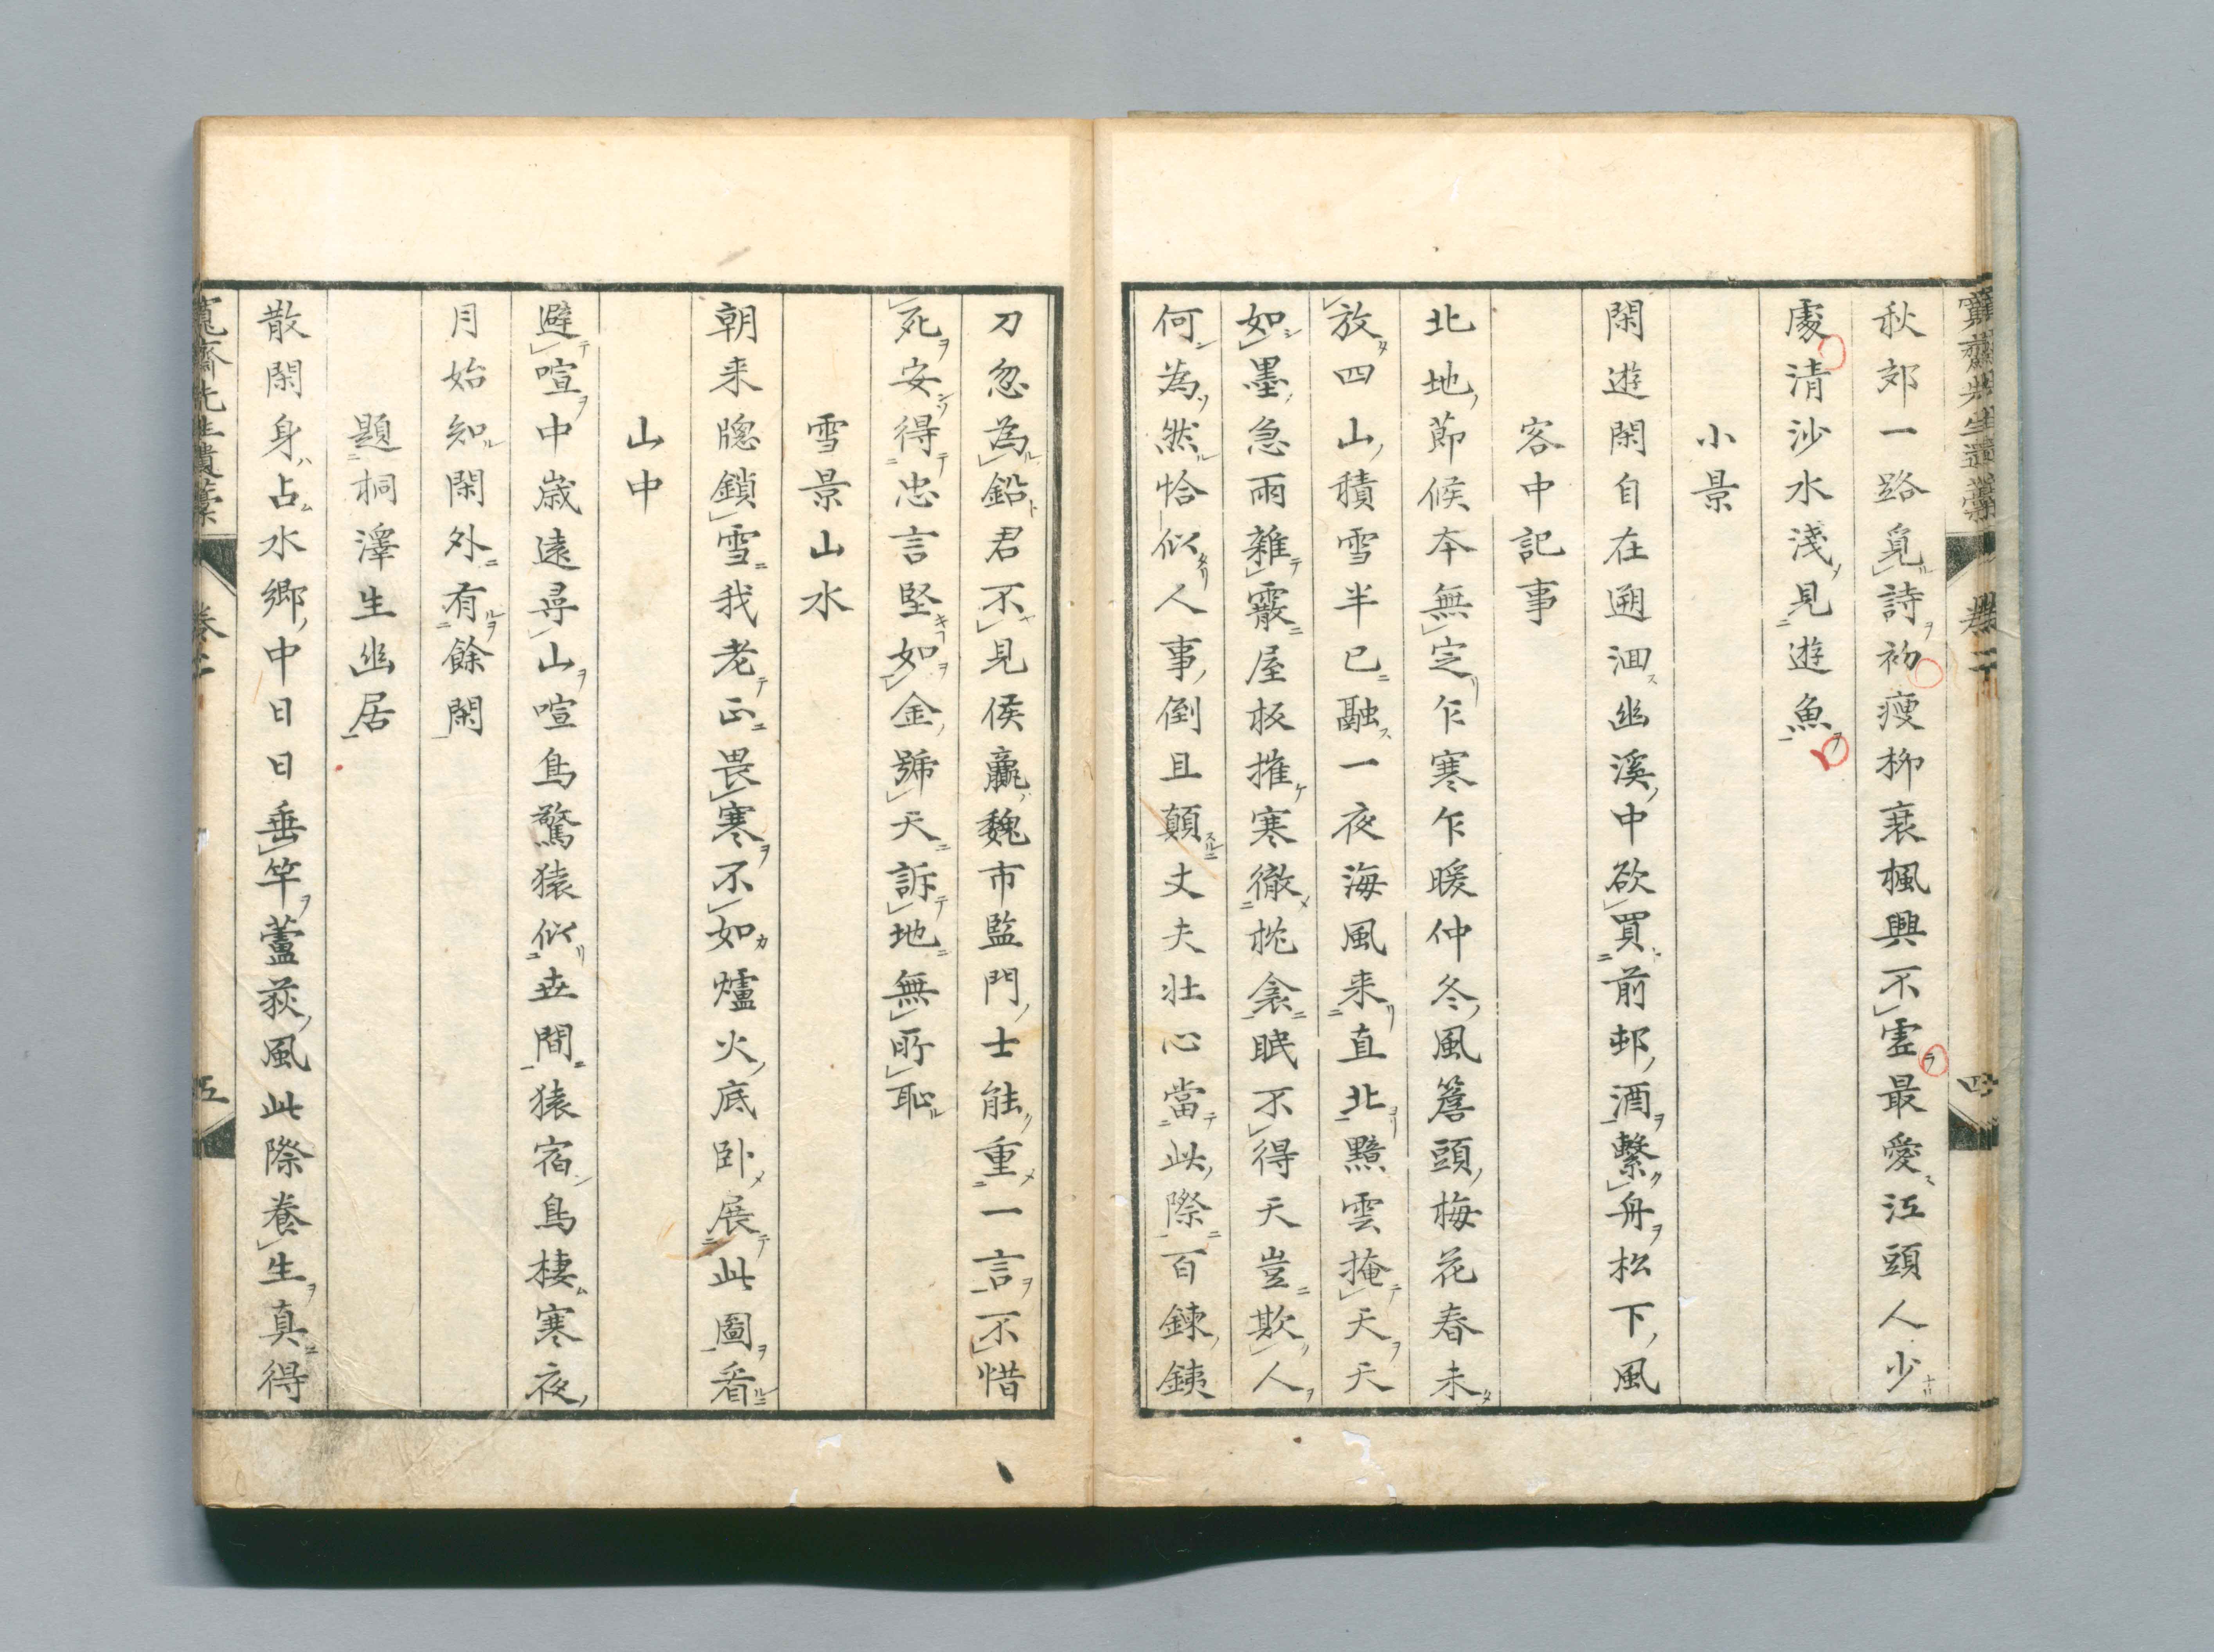 秋郊一路覓詩初瘦柳衰楓興不虛最愛江頭人少
處清沙水淺見遊魚
小景
閑遊閑自在遡洄幽溪中欲買前邨酒繫舟松下風
客中記事
北地節候本無定乍寒乍暖仲冬風簷頭梅花春未
放四山積雪半已融一夜海風来直北黯雲掩天天
如墨急雨雜霰屋板摧寒徹枕衾眠不得天豈欺人
何為然恰似人事倒且顛丈夫壮心當此際百鍊銕
刀忽為鉛君不見侯嬴魏市監門士能重一言不惜
死安得忠言堅如金號天訴地無所恥
雪景山水
朝来牕鎖雪我老正畏寒不如爐火底卧展此圖看
山中
避喧中歳遠尋山喧鳥驚猿似世間猿宿鳥棲寒夜
月始知閑外有餘閑
題桐澤生幽居
散閑身占水鄉中日日垂竿蘆荻風此際養生真得
先生遺藁
卷上
五
四